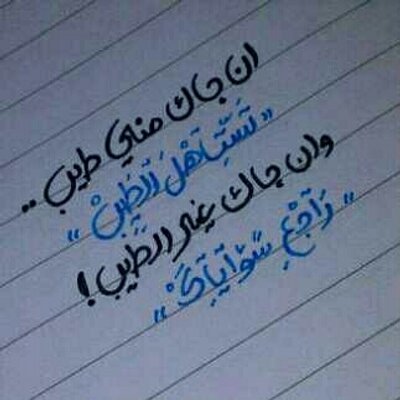 ان جاك مني طيب ..
"تَسْتَاهَلْ الطِّيبْ"
وان جاك غير الطَّيب !
"رَاجِعْ سَوَايَاكْ"